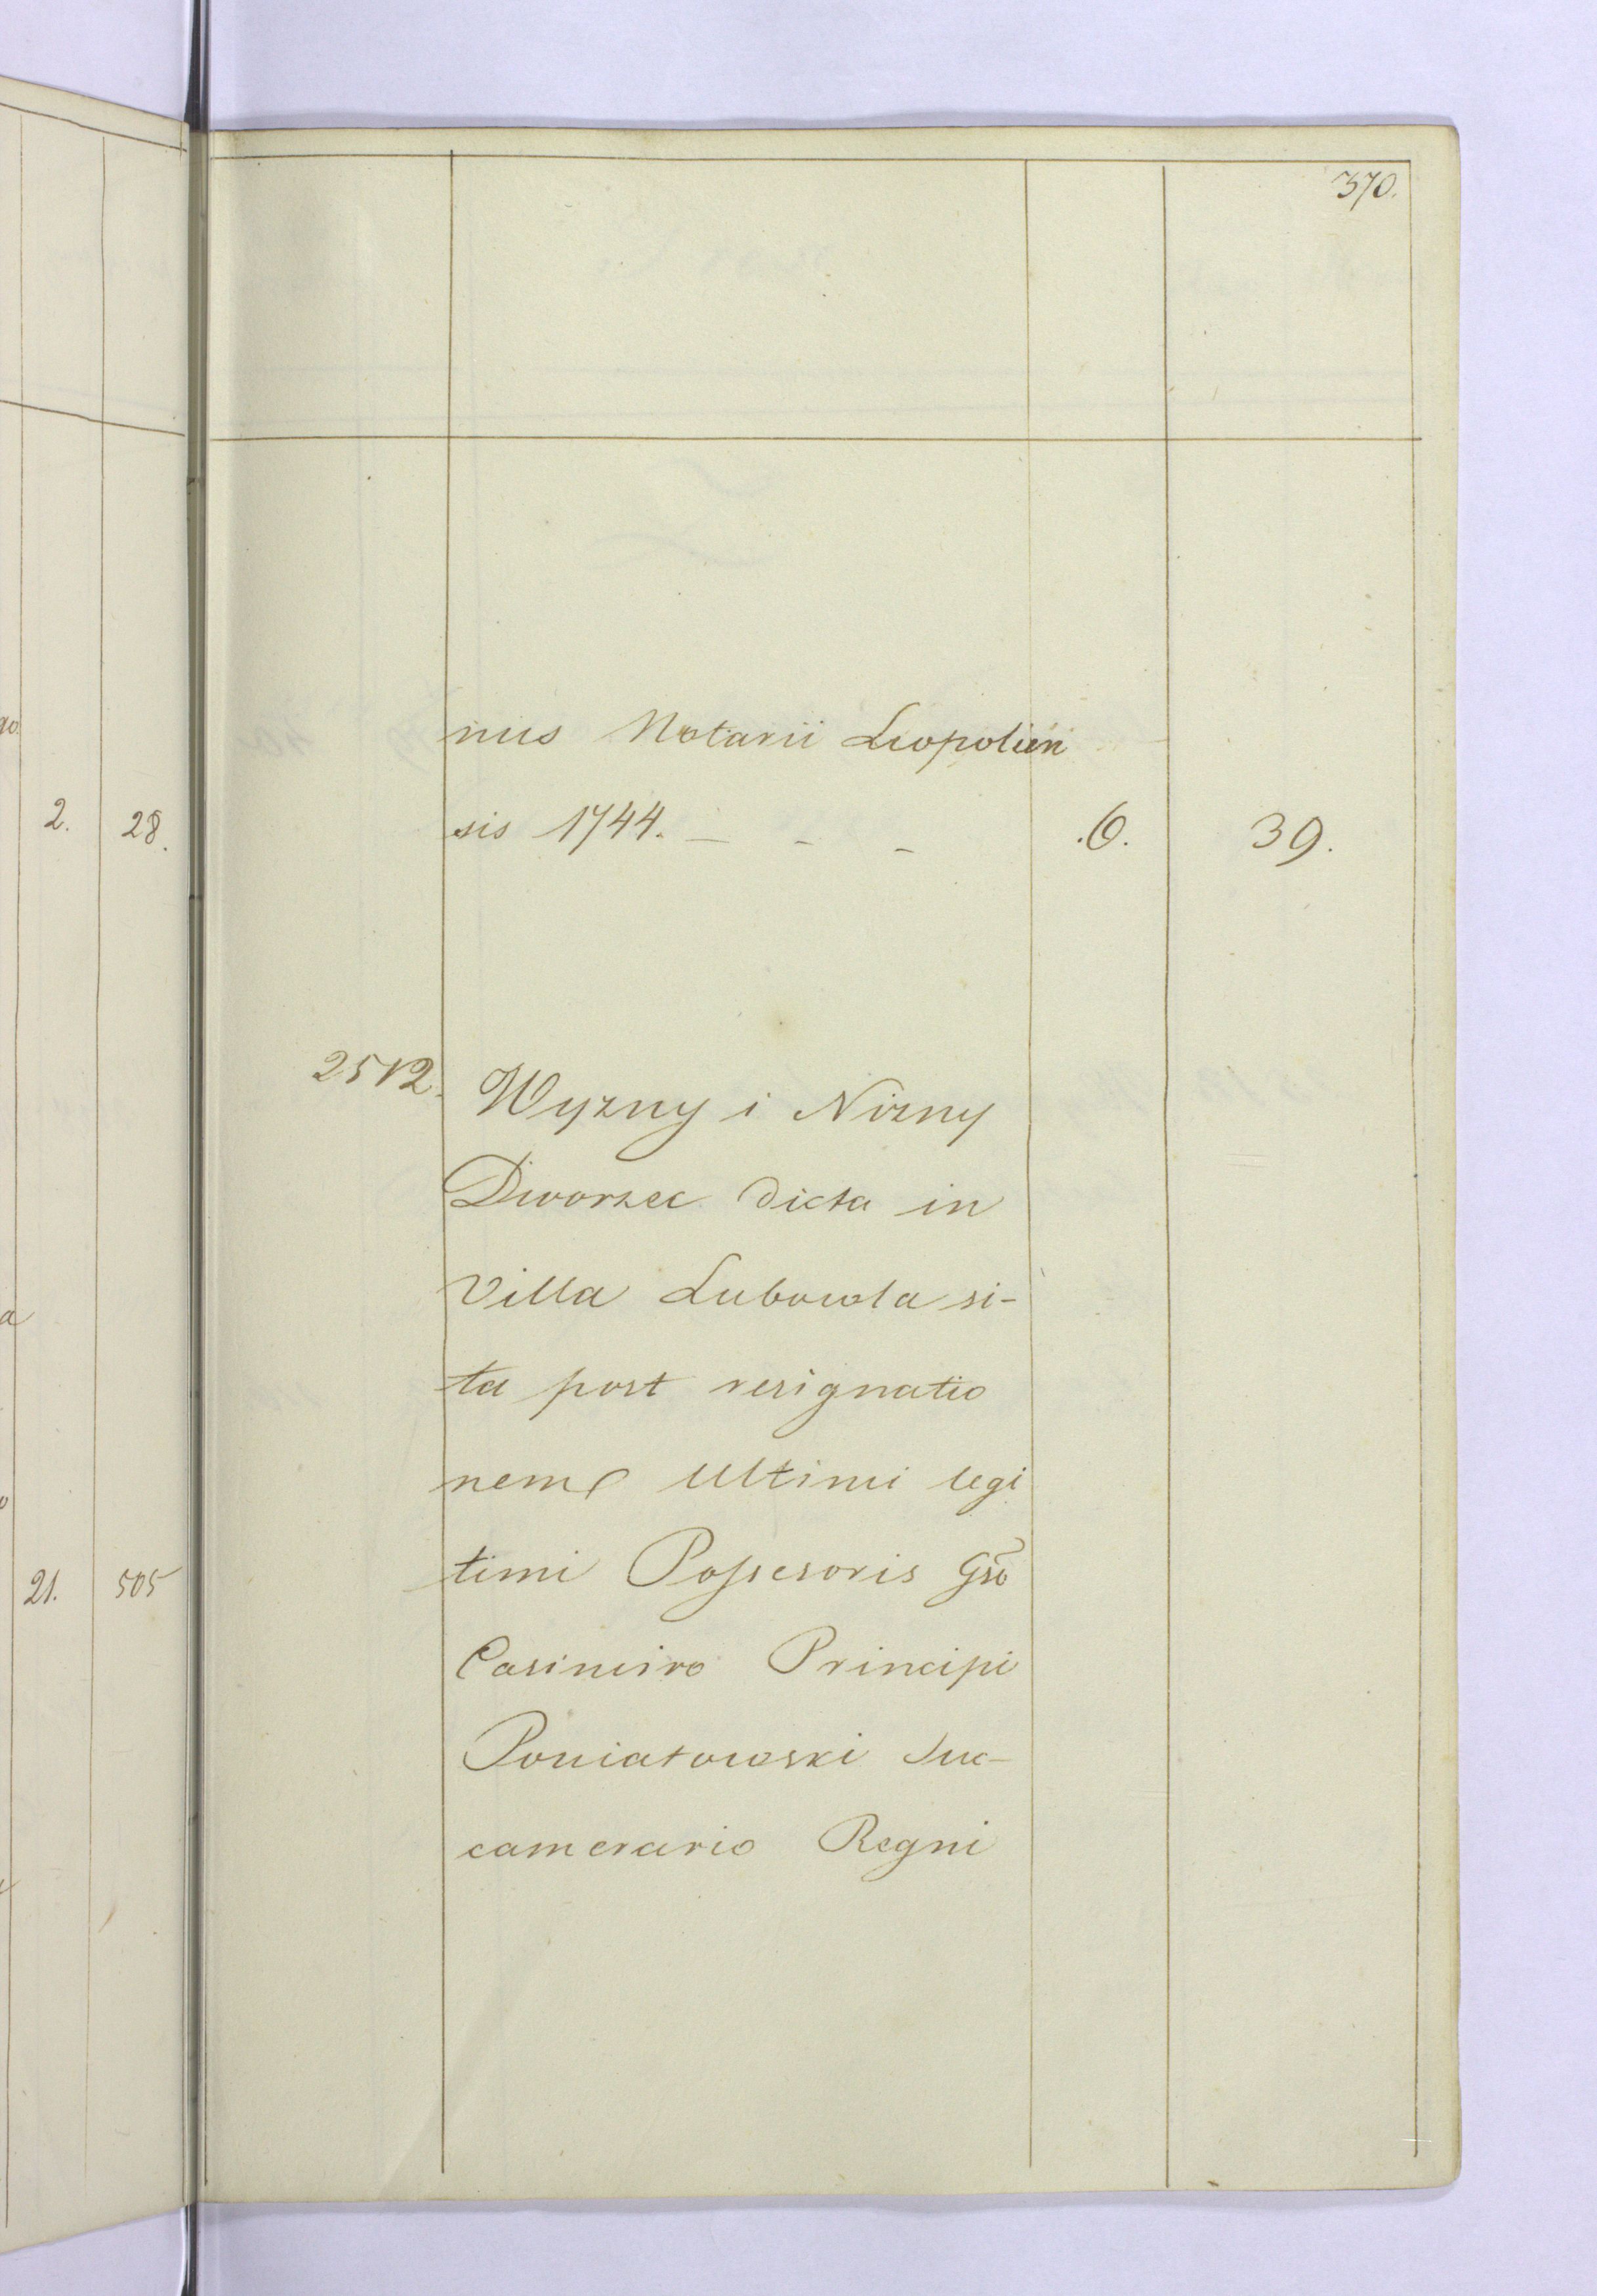 370.
nus Notarii Leopolien
sis 1744. - - - .6. 39.
2512. Wyzny i Nizny
Dworzec dicta in
Villa Lubowla si-
ta post resignatio
nem Ultimi legi
timi Possesoris Gso
Casimiro Principi
Poniatowski Suc-
camerario Regni
2. 28.
21. 505